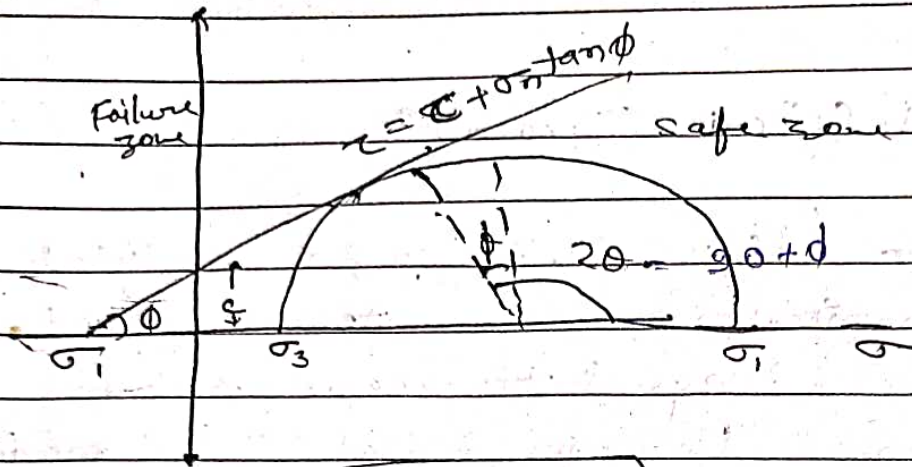 Failure
zone
τ = c + σn tanφ
safe zone
φ
2θ = 90 + φ
c
φ
σ1
σ3
σ1
σ